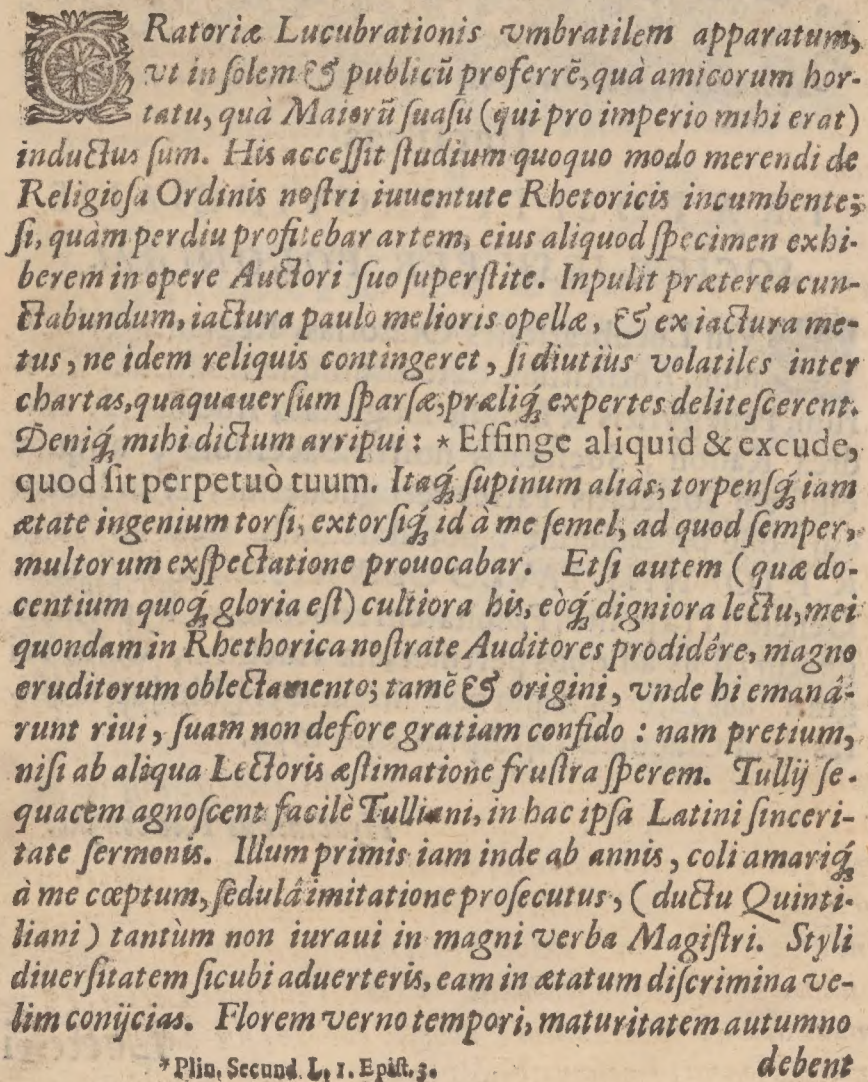 ORatoriæ Lucubrationis vmbratilem apparatum,
vt in ſolem & publicũ proferrẽ, quà amicorum hor-
tatu, quà Maiorũ ſuaſu (qui pro imperio mihi erat)
inductus ſum. His acceſſit ſtudium quoquo modo merendi de
Religioſa Ordinis noſtri iuuentute Rhetoricis incumbente;
ſi, quàm perdiu profitebar artem, eius aliquod ſpecimen exhi-
berem in opere Auctori ſuo ſuperſtite. Inpulit præterea cun-
ctabundum, iactura paulò melioris opellæ, & ex iactura me-
tus, ne idem reliquis contingeret, ſi diutiùs volatiles inter
chartas, quaquauerſum ſparſæ, præliq́ꝫ expertes deliteſcerent.
Deniq́ꝫ mihi dictum arripui: * Effinge aliquid & excude,
quod ſit perpetuò tuum. Itaq́ꝫ ſupinum aliàs, torpenſq́ꝫ iam
ætate ingenium torſi, extorſiq́ꝫ id à me ſemel, ad quod ſemper,
multorum exſpectatione prouocabar. Etſi autem (quæ do-
centium quoq́ꝫ gloria eſt) cultiora his, eòq́ꝫ digniora lectu, mei
quondam in Rhethorica noſtrate Auditores prodidêre, magno
eruditorum oblectamento; tamẽ & origini, vnde hi emanâ-
runt riui, ſuam non defore gratiam confido: nam pretium,
niſi ab aliqua Lectoris æſtimatione fruſtra ſperem. Tullij ſe-
quacem agnoſcent facilè Tulliani, in hac ipſa Latini ſinceri-
tate ſermonis. Illum primis iam inde ab annis, coli amariq́ꝫ
à me cœptum, ſedulâ imitatione proſecutus, (ductu Quinti-
liani) tantùm non iuraui in magni verba Magiſtri. Styli
diuerſitatem ſicubi aduerteris, eam in ætatum diſcrimina ve-
lim conijcias. Florem verno tempori, maturitatem autumno
* Plin. Secund. L. 1. Epiſt. 3. debent